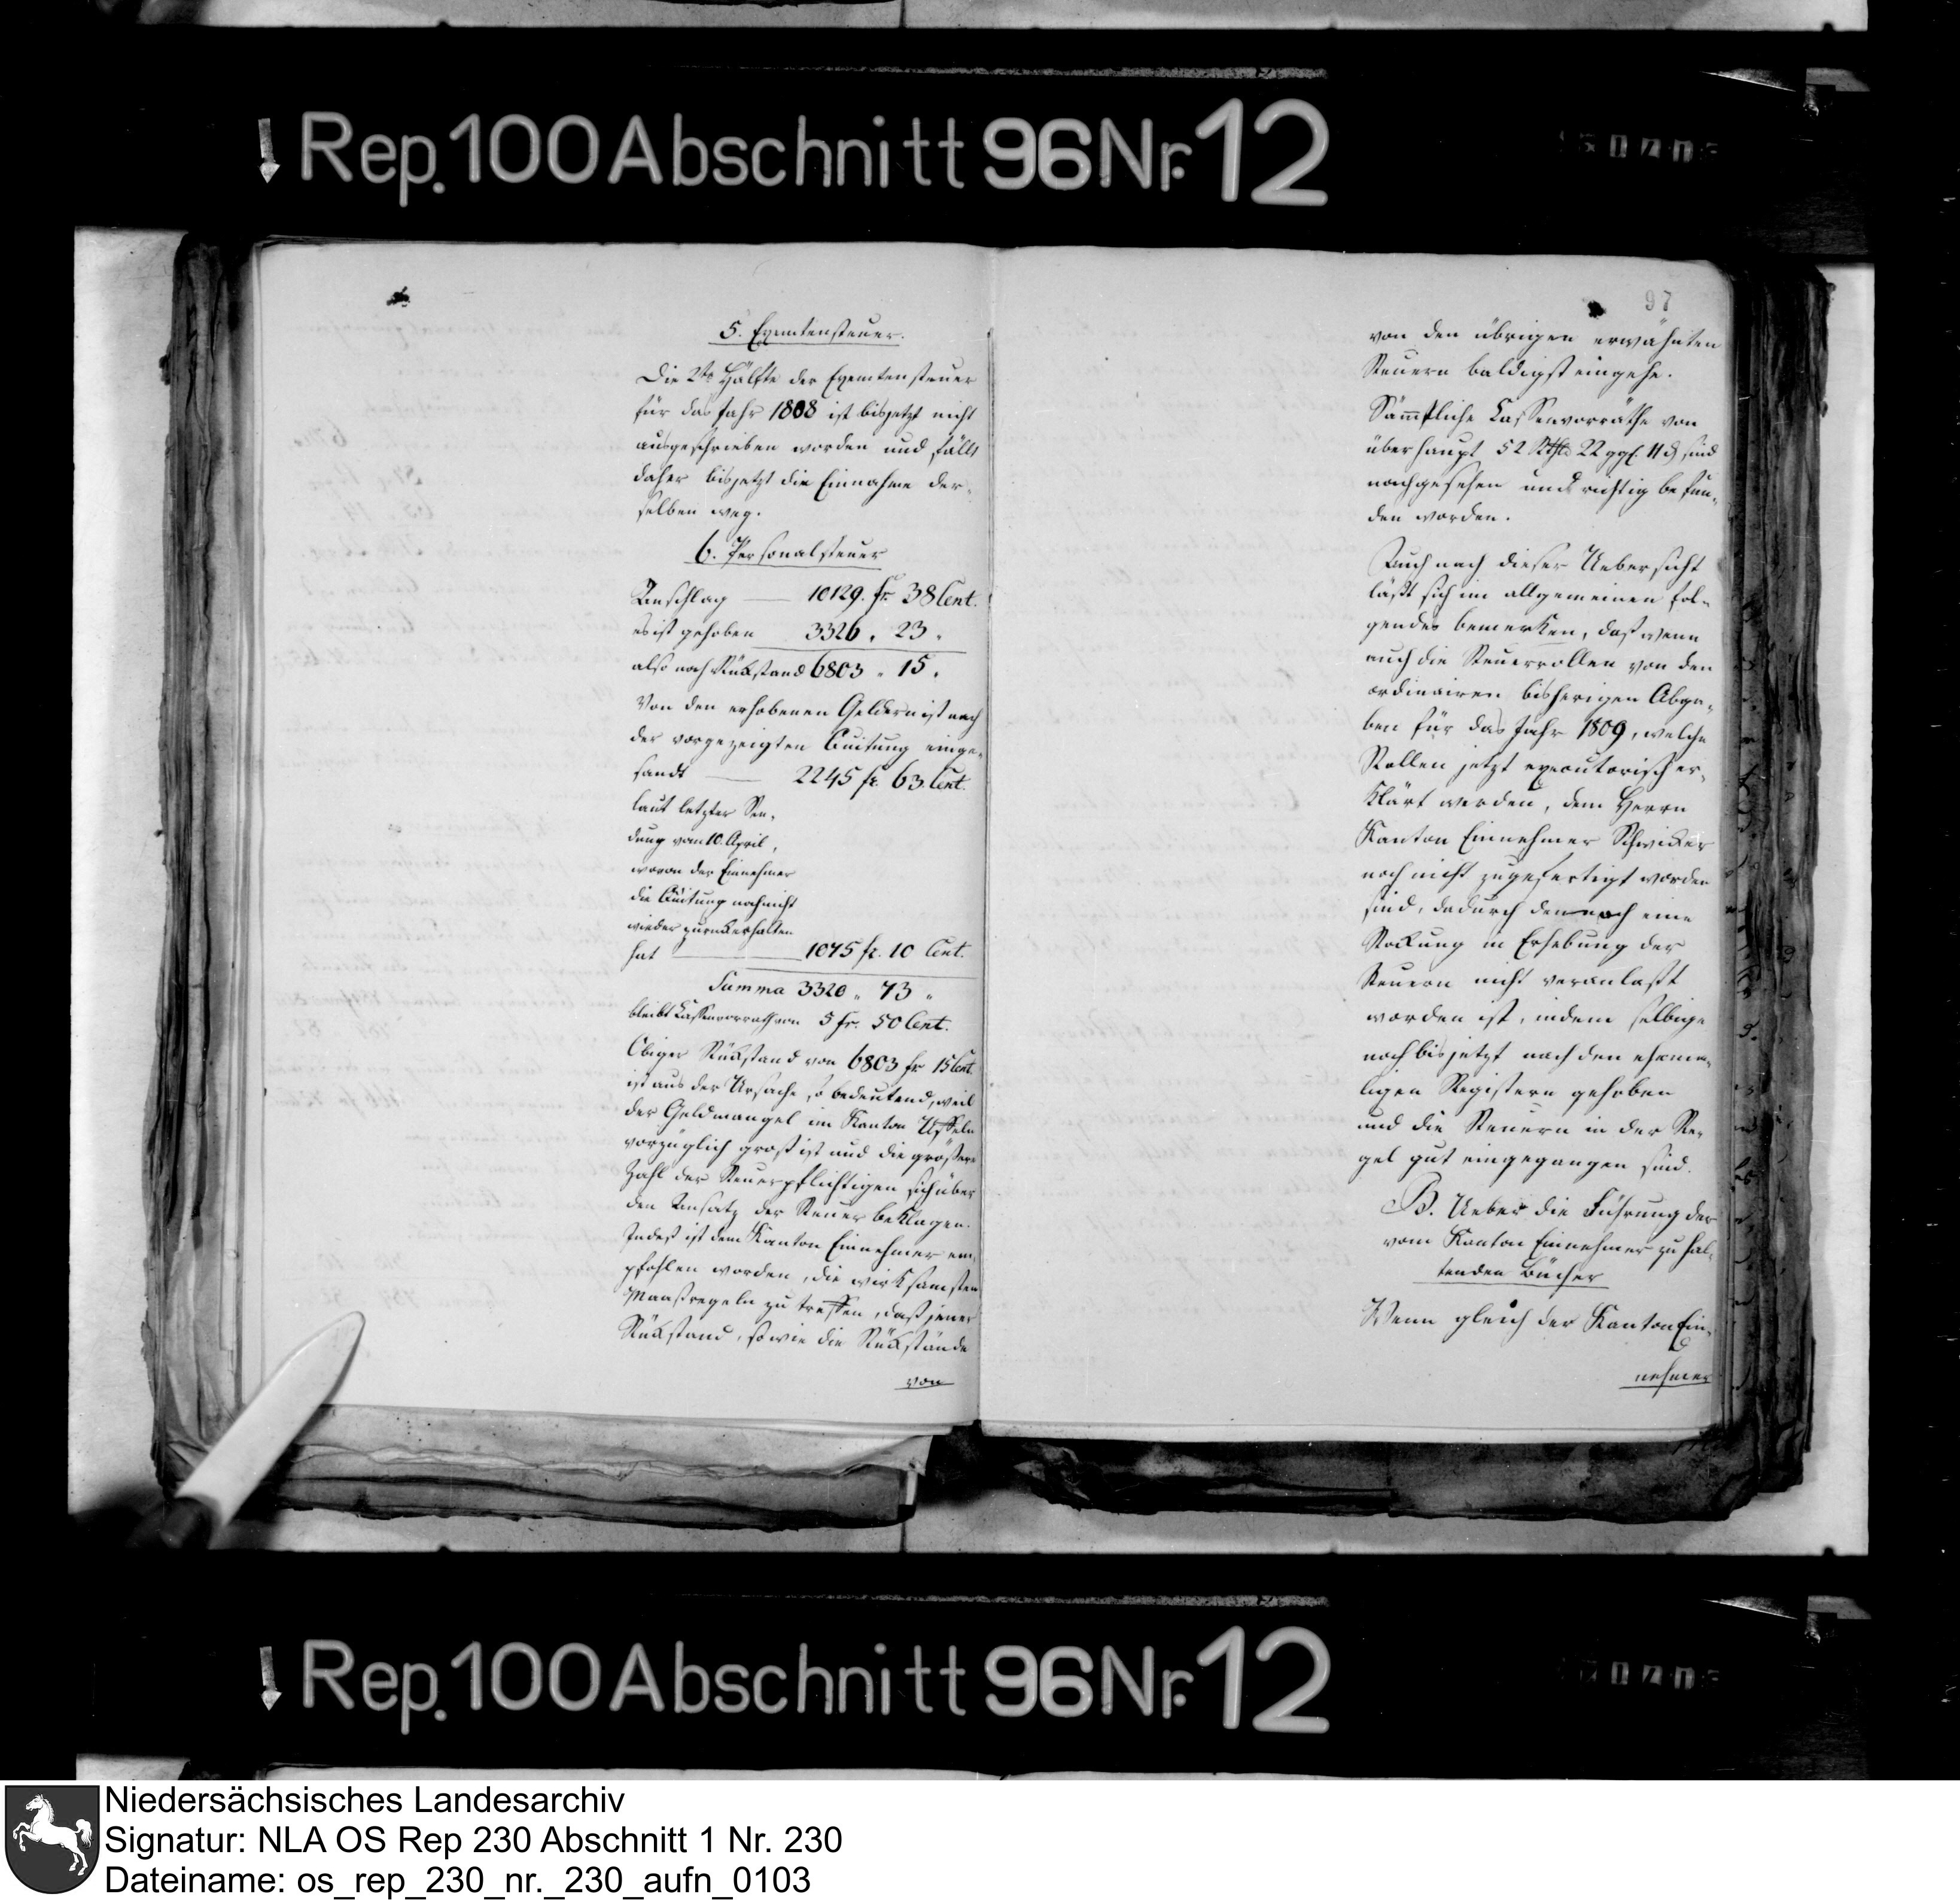 Rep. 100 Abschnitt 96 Nr. 12
5. Exemtensteuer.
Die 2te Hälfte der Exemtensteuer
für das Jahr 1808 ist bisjetzt nicht
ausgeschrieben worden und fällt
daher bisjetzt die Einnahme der-
selben weg.
6. Personalsteuer
Anschlag — 10129. fr. 38 Cent.
es ist gehoben 3326 „ 23 „
also noch Rükstand 6803 „ 15 „
Von den erhobenen Geldern ist nach
der vorgezeigten Quitung einge-
sandt — 2245 fr. 63 Cent.
laut letzter Sen-
dung vom 10. April,
wovon der Einnehmer
die Quitung noch nicht
wieder zurückerhalten
hat — 1075 fr. 10 Cent.
Summa 3320 „ 73 „
bleibt Cassenvorrath von 5 fr. 50 Cent.
Obiger Rükstand von 6803 fr 15 Cent.
ist aus der Ursache so bedeutend, weil
der Geldmangel im Kanton Uffeln
vorzüglich groß ist und die größere
Zahl der Steuerpflichtigen sich über
den Ansatz der Steuer beklagen.
Indeß ist dem Kanton Einnehmer em-
pfohlen worden, die wirksamsten
Maaßregeln zu treffen, daß jener
Rükstand, so wie die Rükstände
von
97
von den übrigen erwähnten
Steuern baldigst eingehe.
Sämmtliche Cassenvorräthe von
überhaupt 52 Rthlr 22 ggl. 11 d sind
nachgesehen und richtig befun-
den worden.
Auch nach dieser Uebersicht
läßt sich im allgemeinen fol-
gendes bemerken, daß wenn
auch die Steuerrollen von den
ordinairen bisherigen Abga-
ben für das Jahr 1809, welche
Rollen jetzt executorisch er-
klärt werden, dem Herrn
Kanton Einnehmer Schwicker
noch nicht zugefertigt worden
sind, dadurch dennoch eine
Stockung in Erhebung der
Steuern nicht veranlaßt
worden ist, indem selbige
noch bisjetzt nach den ehema-
ligen Registern gehoben
und die Steuern in der Re-
gel gut eingegangen sind.
B. Ueber die Führung der
vom Kanton Einnehmer zu hal-
tenden Bücher
Wenn gleich der Kanton Ein-
nehmer
Rep. 100 Abschnitt 96 Nr. 12
Niedersächsisches Landesarchiv
Signatur: NLA OS Rep 230 Abschnitt 1 Nr. 230
Dateiname: os_rep_230_nr._230_aufn_0103